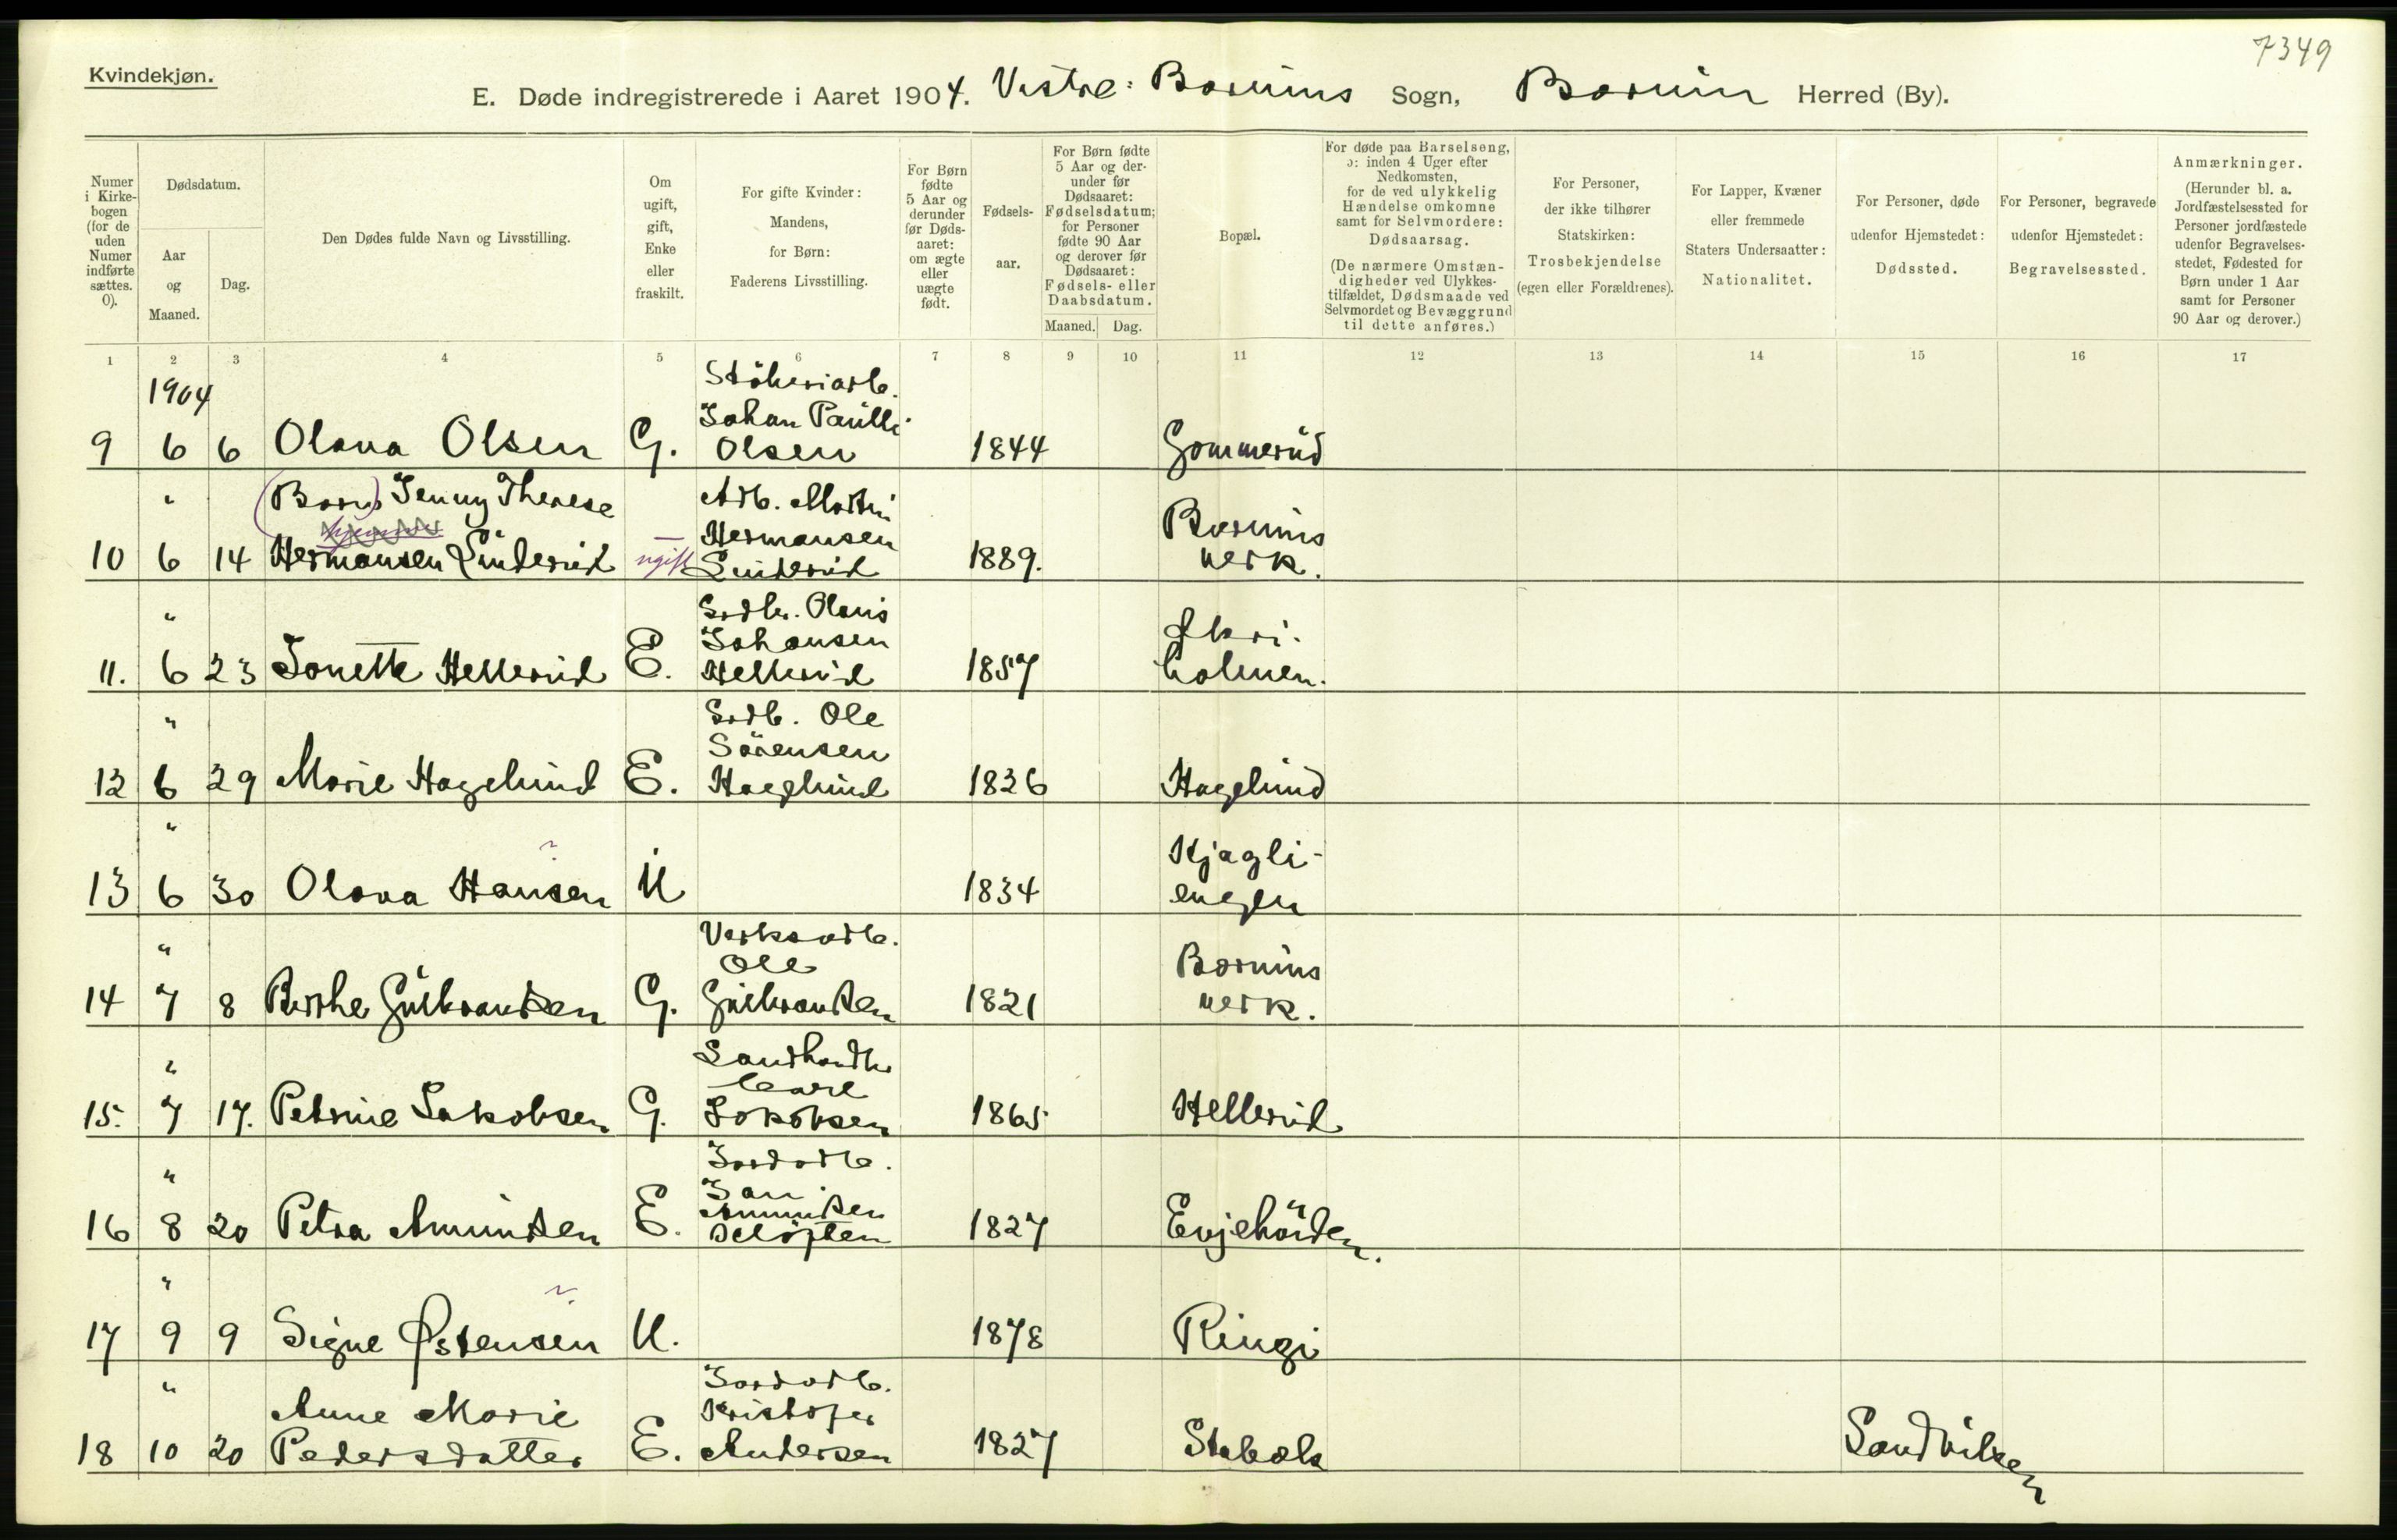 7349
Kvindekjøn.
E. Døde indregistrerede i Aaret 1904. Vestre: Bærums Sogn, Bærum Herred (By).
Numer i Kirke-bogen (for de uden Numer indførte sættes. 0).
Dødsdatum.
Aar og Maaned.
Dag.
Den Dødes fulde Navn og Livsstilling.
Om ugift, gift, Enke eller fraskilt.
For gifte Kvinder: Mandens, for Børn: Faderens Livsstilling.
For Børn fødte 5 Aar og derunder før Døds-aaret: om ægte eller uægte født.
Fødsels-aar.
For Børn fødte 5 Aar og der-under før Dødsaaret: Fødselsdatum; for Personer fødte 90 Aar og derover før Dødsaaret: Fødsels- eller Daabsdatum.
Maaned. Dag.
Bopæl.
For døde paa Barselseng, ɔ: inden 4 Uger efter Nedkomsten, for de ved ulykkelig Hændelse omkomne samt for Selvmordere: Dødsaarsag.
(De nærmere Omstæn-digheder ved Ulykkes-tilfældet, Dødsmaade ved Selvmordet og Bevæggrund til dette anføres.)
For Personer, der ikke tilhører Statskirken: Trosbekjendelse (egen eller Forældrenes).
For Lapper, Kvæner eller fremmede Staters Undersaatter: Nationalitet.
For Personer, døde udenfor Hjemstedet: Dødssted.
For Personer, begravede udenfor Hjemstedet: Begravelsessted.
Anmærkninger.
(Herunder bl. a. Jordfæstelsessted for Personer jordfæstede udenfor Begravelses-stedet, Fødested for Børn under 1 Aar samt for Personer 90 Aar og derover.)
1 2 3 4 5 6 7 8 9 10 11 12 13 14 15 16 17
1904
Støberiarb.
Johan Paulli
9 6 6 Olava Olsen G. Olsen 1844 Gommerud
" (Barn) Jenny Therese Arb. Martin
Hermansen Bærums
10 6 14 Hermansen Linderud ugift Linderud 1889. verk.
" Grdbr. Olaus
Johansen
11. 6 23 Jonette Hellerud E. Hellerud 1857 holmen.
" Grdb. Ole
Sørensen
12 6 29 Marie Hagelund E. Hagelund 1826 Hagelund
" Kjagli-
13 6 30 Olava Hansen U 1834 engen
" Verksarb.
Ole Bærums
14 7 8 Berthe Gulbrandsen G. Gulbrandsen 1821 verk.
" Landhandler
Carl
15. 7 17. Petrine Jakobsen G. Jakobsen 1865 Hellerud
" Jordarb.
Jan
Amundsen
16 8 20 Petra Amundsen E. Sløjten 1827 Evjehøiden.
"
17 9 9 Signe Østensen U. 1878 Ringi
" Jordarb.
Anne Marie Kristofer
18 10 20 Pedersdatter E. Andersen 1827 Stabæk Sandviken